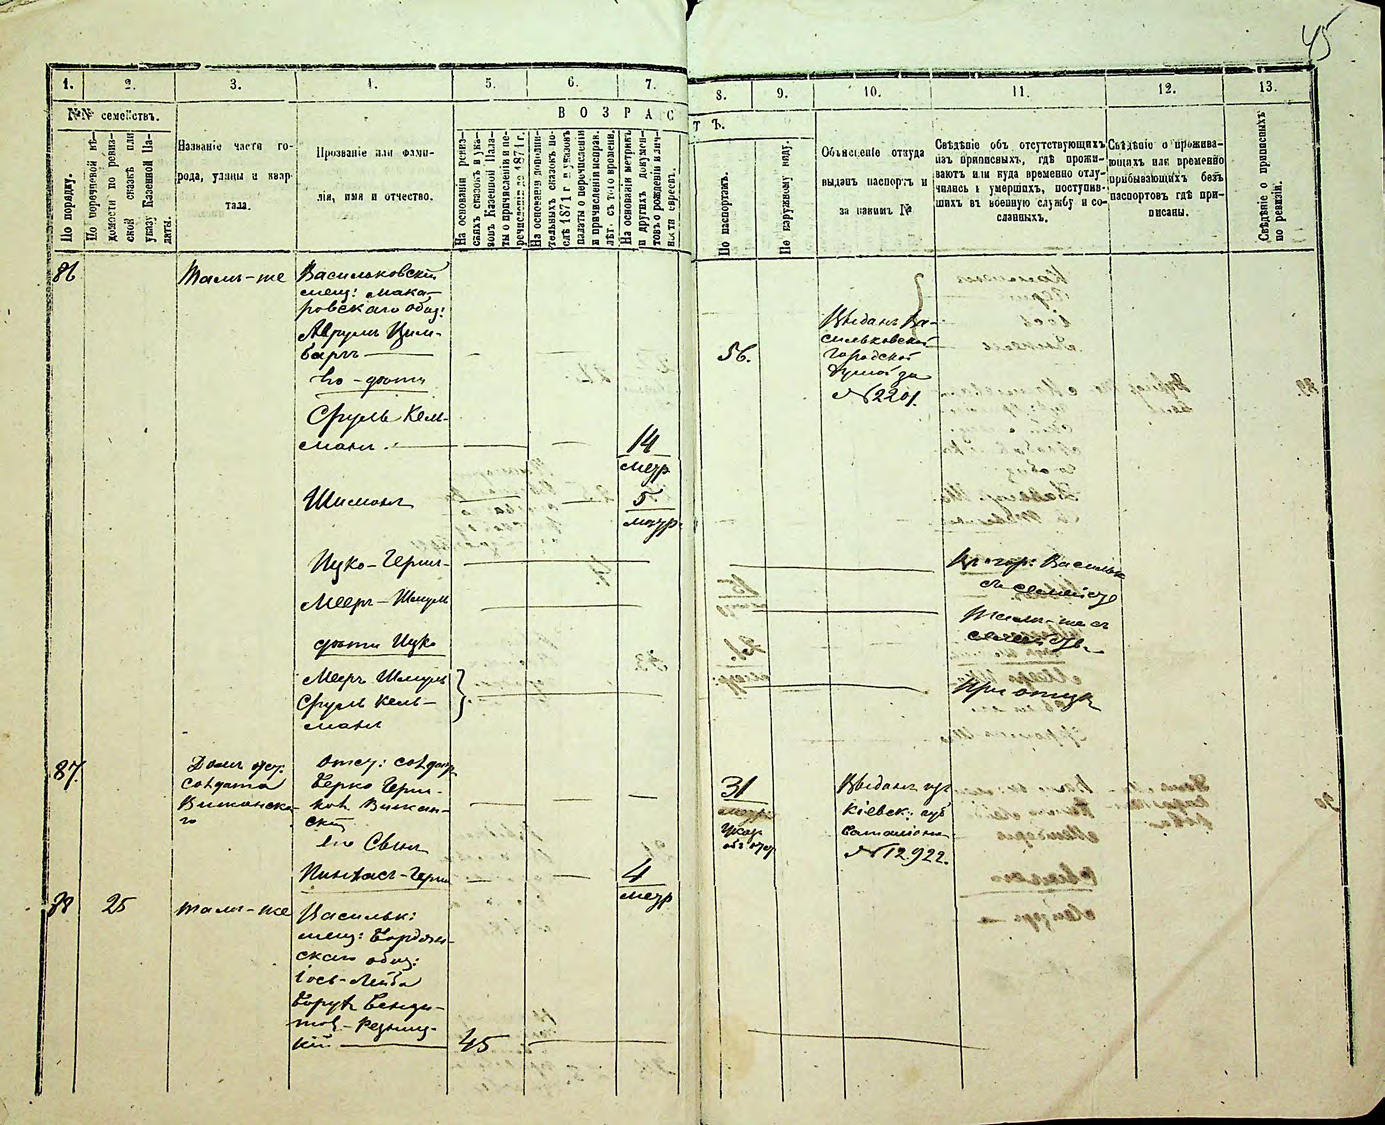 45
1.
2.
3.
4.
5.
6.
7.
8.
9.
10.
11.
12.
13.
№№ семействъ.
ВОЗРАСТЪ.
По порядку.
По поречневой вѣдомости по ревизской сказкѣ или указу Казенной Палаты.
Названіе части го-
рода, улицы и квар-
тала.
Прозваніе или фами-
лія, имя и отчество.
На основаніи ревиз-
скихъ сказокъ и ука-
зовъ Казенной Пала-
ты о причисленіи и пе-
речисленіи до 1874 г.
На основаніи дополни-
тельныхъ сказокъ по-
слѣ 1874 г. и указовъ
палаты о перечисленіи
и причисленіи исправ.
лѣт. съ того времени.
На основаніи метрикъ
и другихъ докумен-
товъ о рожденіи и лич-
ности евреевъ.
По паспортамъ.
По наружному виду.
Объясненіе откуда
выданъ паспортъ и
за какимъ №
Свѣдѣніе объ отсутствующихъ
изъ приписныхъ, гдѣ прожи-
ваютъ или куда временно отлу-
чились и умершихъ, поступив-
шихъ въ военную службу и со-
сланныхъ.
Свѣдѣніе о прожива-
ющихъ или временно
прибывающихъ безъ
паспортовъ гдѣ при-
писаны.
Свѣдѣніе о приписныхъ
по ревизіи.
86
Тамъ-же
Васильковскій
мещ: Мака-
ровскаго общ:
Аврумъ Цим-
баргъ
56.
Выданъ Ва-
сильковской
городской
Думой за
№ 2201.
Его-дѣти
Сруль Кель-
манъ
14
метр
Шимонъ
5
метр.
Ицко-Герш-
Въ гор: Васильк
съ семейств
Мееръ-Шмуль
Тамъ-же съ
семейств.
дѣти Ицка
Мееръ Шмуль
Сруль Кель-
манъ
При отцѣ
87.
Домъ отст.
солдата
отст: солдат.
Берко Герш-
ковъ
31
Выданъ
Кіевск: губ
баталіона
№ 12922.
Указ
объ отст
Его Сынъ
Пинхасъ-Герш
4
метр
88
25
тамъ-же
Васильк:
мещ:
скаго общ:
Іось-Лейба
Борухъ
45